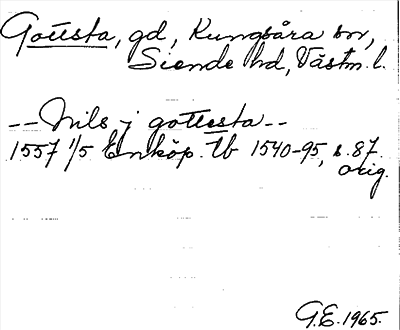 Gottsta, gd, Kungsåra sn,
Siende hd, Västm. l.
-- Nils j gottssta --
1557 1/5 Enköp. tb 1540-95, s. 87.
orig.
G.E. 1965.